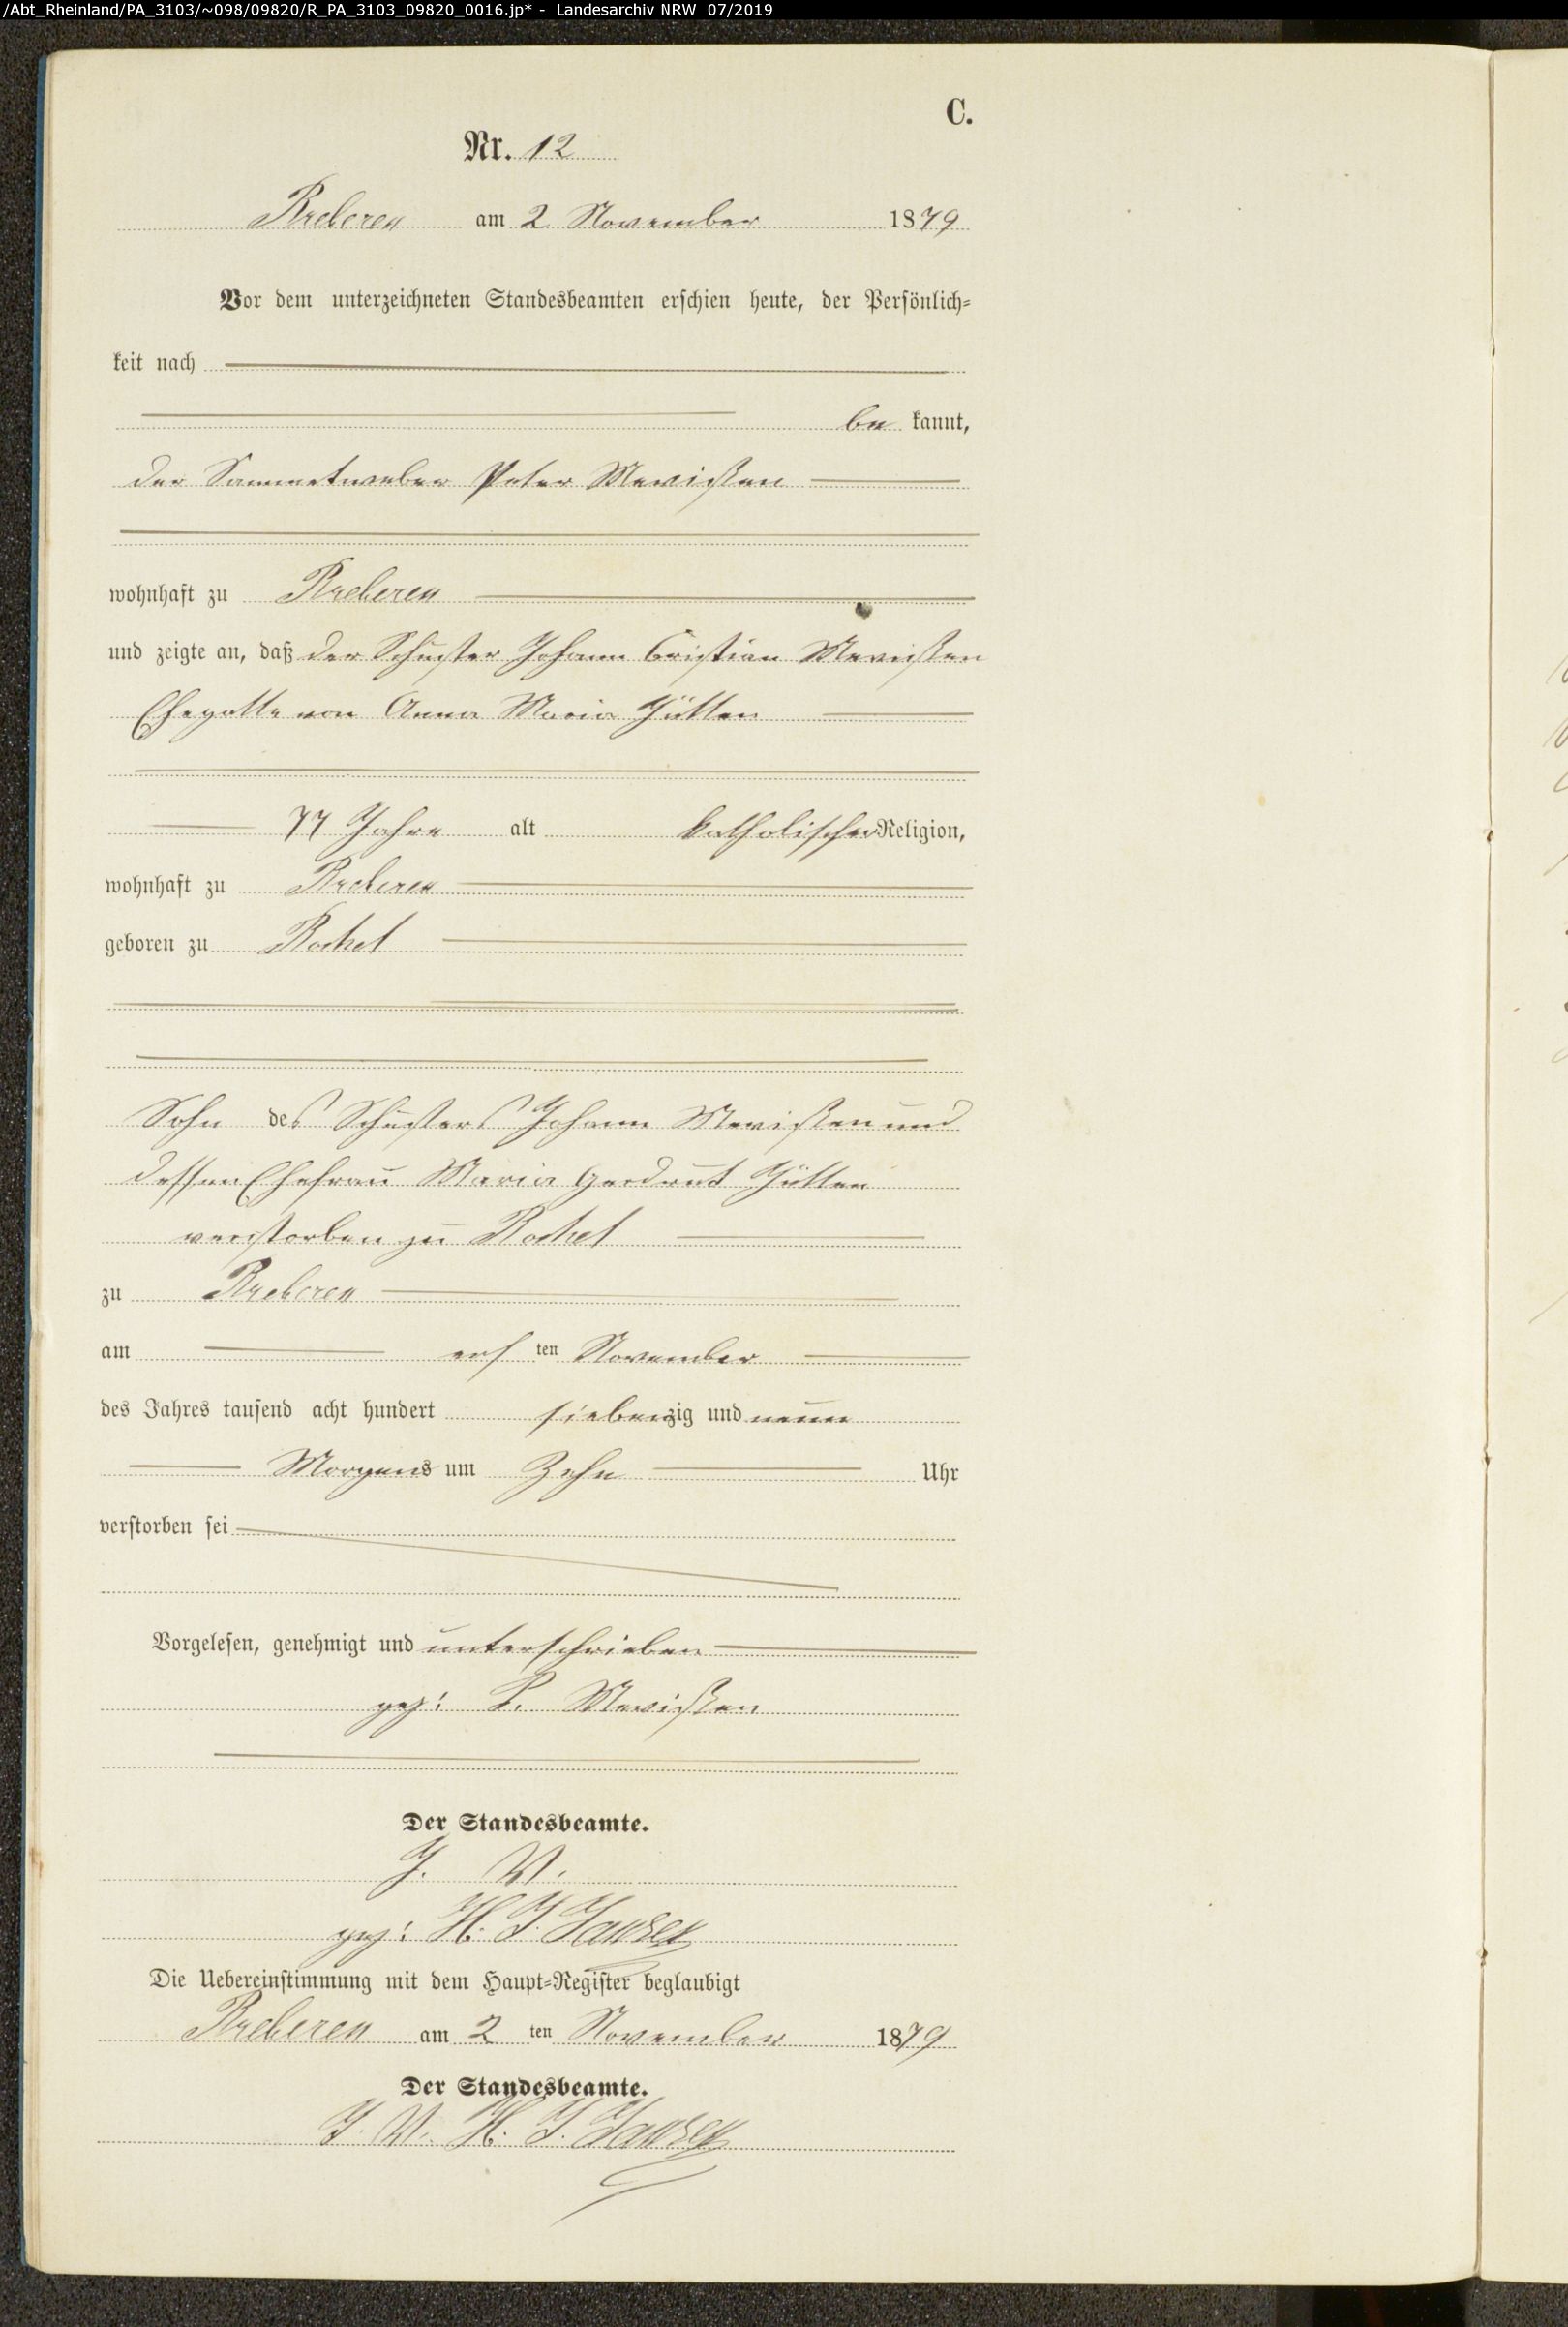 /Abt_Rheinland/PA_3103/~098/09820/R_PA_3103_09820_0016.jp* - Landesarchiv NRW 07/2019
C.
Nr. 12
Breberen am 2 November 1879
Vor dem unterzeichneten Standesbeamten erschien heute, der Persönlich-
keit nach
be kannt,
der Sammetweber Peter Mevißen
wohnhaft zu Breberen
und zeigte an, daß der Schuster Johann Cristian Mevißen
Ehegatte von Anna Maria Jütten
77 Jahre alt katholischer Religion,
wohnhaft zu Breberen
geboren zu Bocket
Sohn des Schusters Johann Mevißen und
dessen Ehefrau Maria Gerdrut Jütten
verstorben zu Bocket
zu Breberen
am ersten November
des Jahres tausend acht hundert siebenzig und neun
Morgens um Zehn Uhr
verstorben sei
Vorgelesen, genehmigt und unterschrieben
gez: P. Mevißen
Der Standesbeamte.
J. V.
gez: H. J. Jansen
Die Uebereinstimmung mit dem Haupt-Register beglaubigt
Breberen am 2 ten November 1879
Der Standesbeamte.
J. V. H. J. Jansen